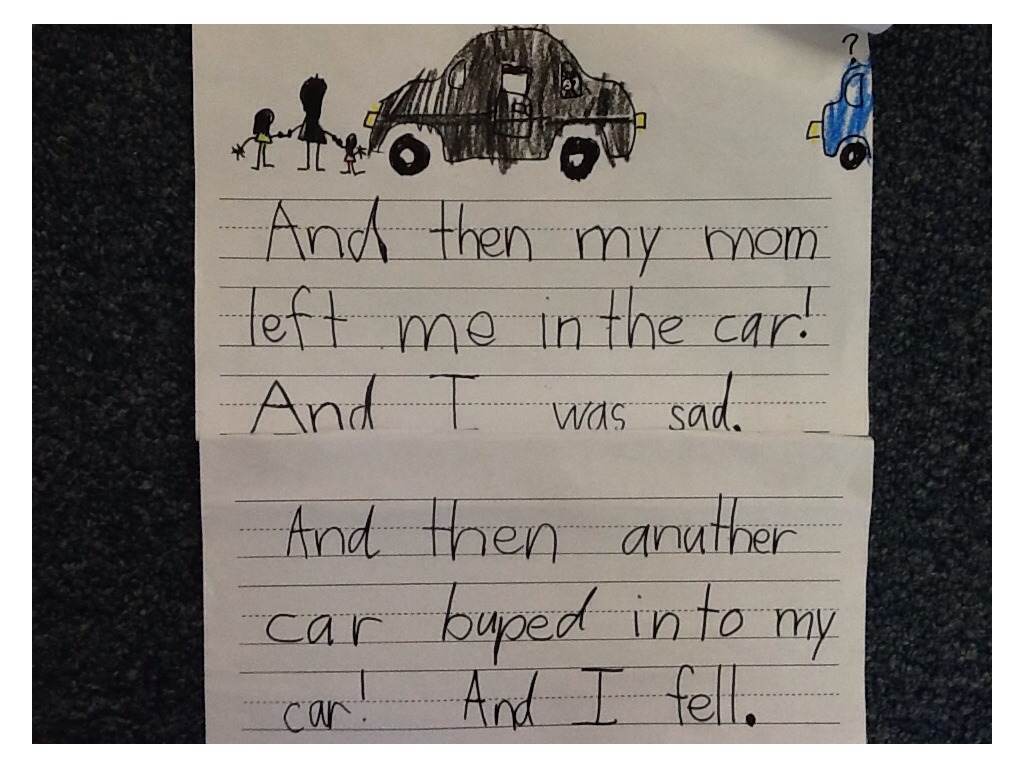 ?
And then my mom
left me in the car!
And I was sad.
And then anuther
car buped into my
car! And I fell.